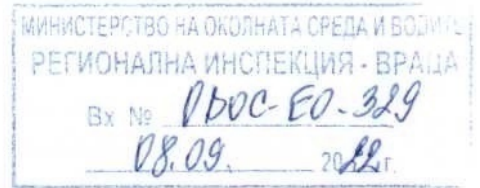 МИНИСТЕРСТВО НА ОКОЛНАТА СРЕДА И ВОДИТЕ
РЕГИОНАЛНА ИНСПЕКЦИЯ - ВРАЦА
Вх № ОВОС-ЕО-329
08.09. 2022 г.